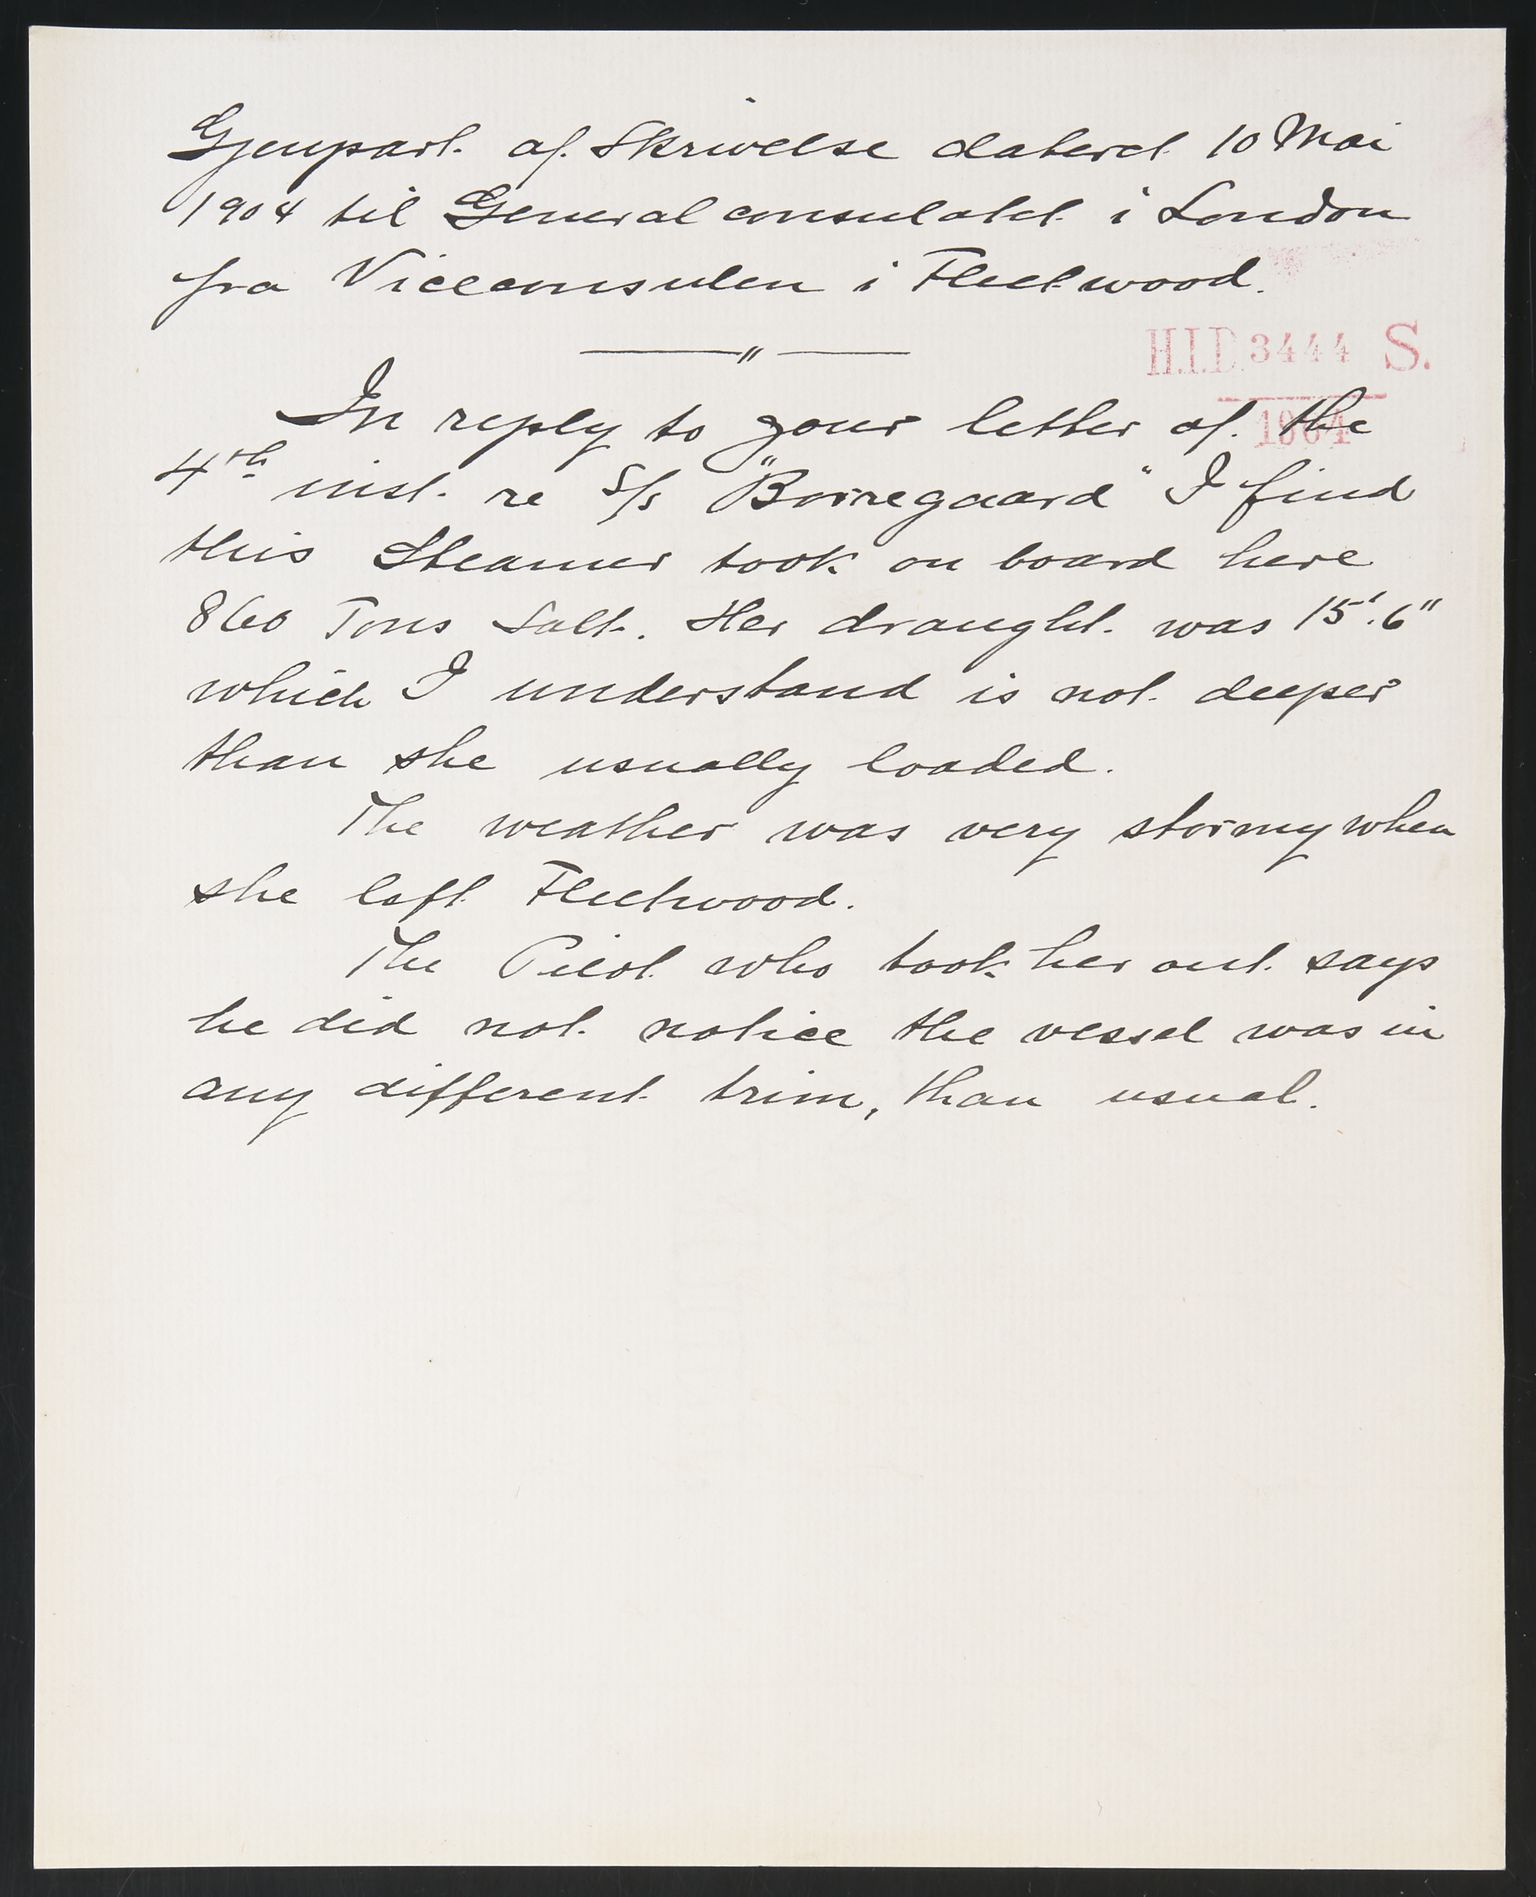 Gjenpart af Skrivelse dateret 10 Mai
1904 til Generalconsulatet i London
fra Viceconsulen i Fleetwood.
H.I.D. 3444 S.
1904
In reply to your letter of the
4th inst. re S/s "Borregaard" I find
this Steamer took on board here
860 Tons Salt. Her draught was 15'.6"
which I understand is not deeper
than she usually loaded.
The weather was very stormy when
she left Fleetwood.
The Pilot who took her out says
he did not notice the vessel was in
any different trim, than usual.